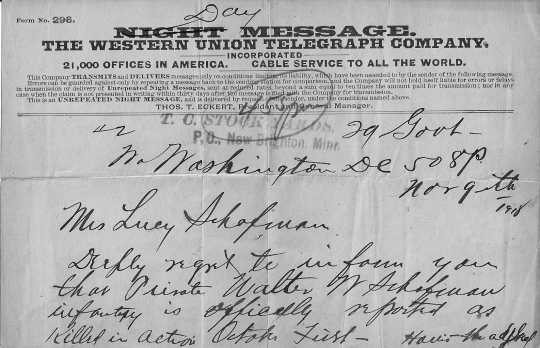 Day
Form No. 296.
NIGHT MESSAGE.
THE WESTERN UNION TELEGRAPH COMPANY.
INCORPORATED
21,000 OFFICES IN AMERICA. CABLE SERVICE TO ALL THE WORLD.
This Company TRANSMITS and DELIVERS messages only on conditions limiting its liability, which have been assented to by the sender of the following message.
Errors can be guarded against only by repeating a message back to the sending station for comparison, and this Company will not hold itself liable for errors or delays
in transmission or delivery of Unrepeated Night Messages, sent at reduced rates, beyond a sum equal to ten times the amount paid for transmission; nor in any
case when the claim is not presented in writing within thirty days after the message is filed with the Company for transmission.
This is an UNREPEATED NIGHT MESSAGE, and is delivered by request of the sender, under the conditions named above.
THOS. T. ECKERT, President and General Manager.
T. C. STOCK YARDS.
P. O., New Brighton, Minn.
29 Govt
Washington DC 508P
Nov 9th
1918
Mrs Lucy Schofman
Deeply regret to inform you
that Private Walter W Schofman
infantry is officially reported as
killed in action October First
Harris